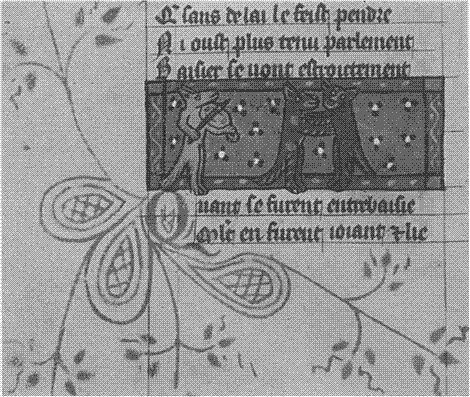 Et sans delai le feist pendre
Ni oust plus tenu parlement
Baisier se vont estroitement
Quant se furent entrebaisie
Molt en furent ioiant ⁊ lie